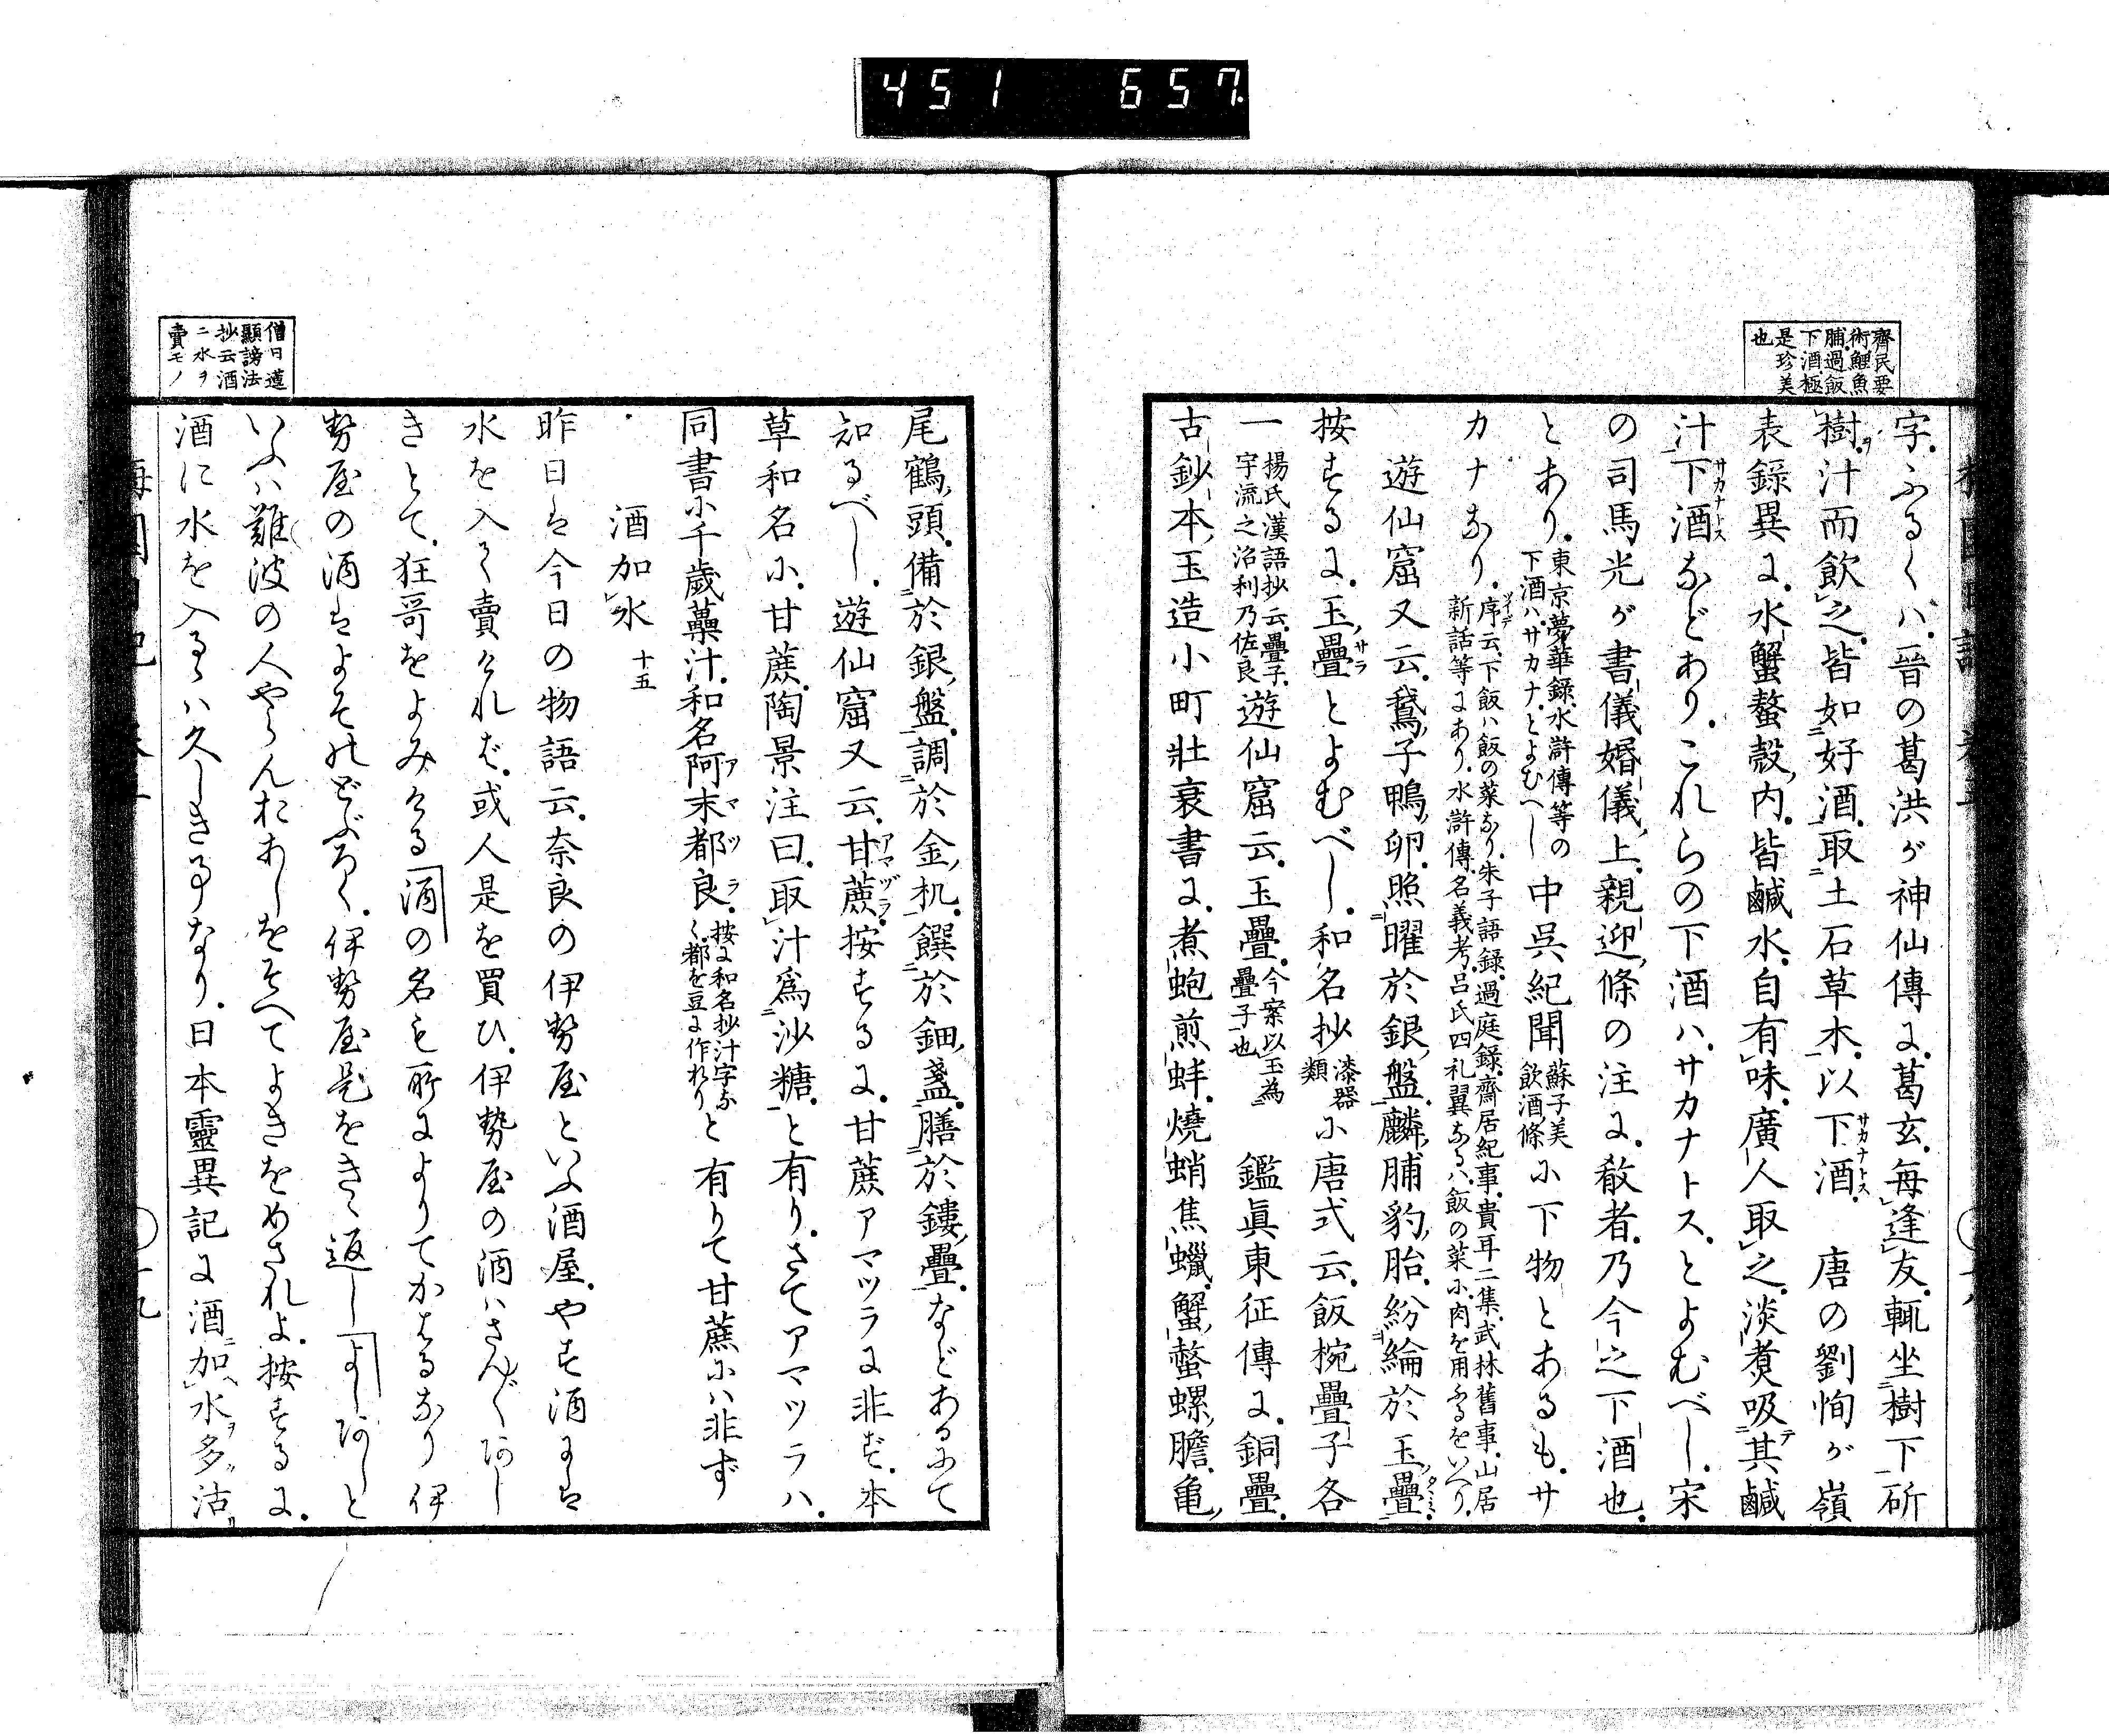 451 657
齊民要
術鯉魚
脯過飯
下酒極
是珍美
也
字ふるくハ晉の葛洪が神仙傳に葛玄毎逢友輒坐樹下斫
樹汁而飲之皆如好酒取土石草木以下酒 唐の劉恂が嶺
表錄異に水蟹螯殼内皆鹹水自有味廣人取之淡煑吸其鹹
汁下酒などあり これらの下酒ハサカナトスとよむべし宋
の司馬光が書儀婚儀上親迎條の注に殽者乃今之下酒也
とあり 東京夢華録水滸傳等の
下酒ハサカナとよむへし 中呉紀聞 蘇子美
飲酒條 に下物とあるもサ
カナなり 序云下飯ハ飯の菜なり朱子語録過庭録齋居紀事貴耳二集武林舊事山居
新話等にあり水滸傳名義考呂氏四礼翼なるハ飯の菜に肉を用ふるをいへり
遊仙窟又云鵞子鴨卵照曜於銀盤麟脯豹胎紛綸於玉疊
按するに玉疊とよむべし和名抄 漆器
類 に唐式云飯椀疊子各
一 揚氏漢語抄云疊子
宇流之沼利乃佐良 遊仙窟云玉疊 今案以玉為
疊子也 鑑眞東征傳に銅疊
古鈔本玉造小町壯衰書に煮鮑煎蚌燒蛸焦蠟蟹螯螺膽亀
尾鶴頭備於銀盤調於金机饌於鈿盞膳於鏤疊などあるにて
知るべし 遊仙窟又云甘蔗按するに甘蔗アマツラに非ず本
草和名に甘蔗陶景注曰取汁爲沙糖と有りさてアマツラハ
同書に千歲蘽汁和名阿末都良 按に和名抄汁字な
く都を豆に作れり と有りて甘蔗にハ非ず
酒加水 十五
昨日は今日の物語云奈良の伊勢屋といふ酒屋やす酒には
水を入て賣けれど或人是を買ひ伊勢屋の酒ハさんざんあし
きとて狂哥をよみける 酒の名も所によりてかはるなり伊
勢屋の酒はよそのどぶろく伊勢屋是をきゝ返し よしあしと
いふハ難波の人やらんおあしをそへてよきをめされよ按するに
酒に水を入るゝハ久しき事なり日本靈異記に酒加水多沽
僧日蓮
顯謗法
抄云酒
ニ水ヲ
賣モノ